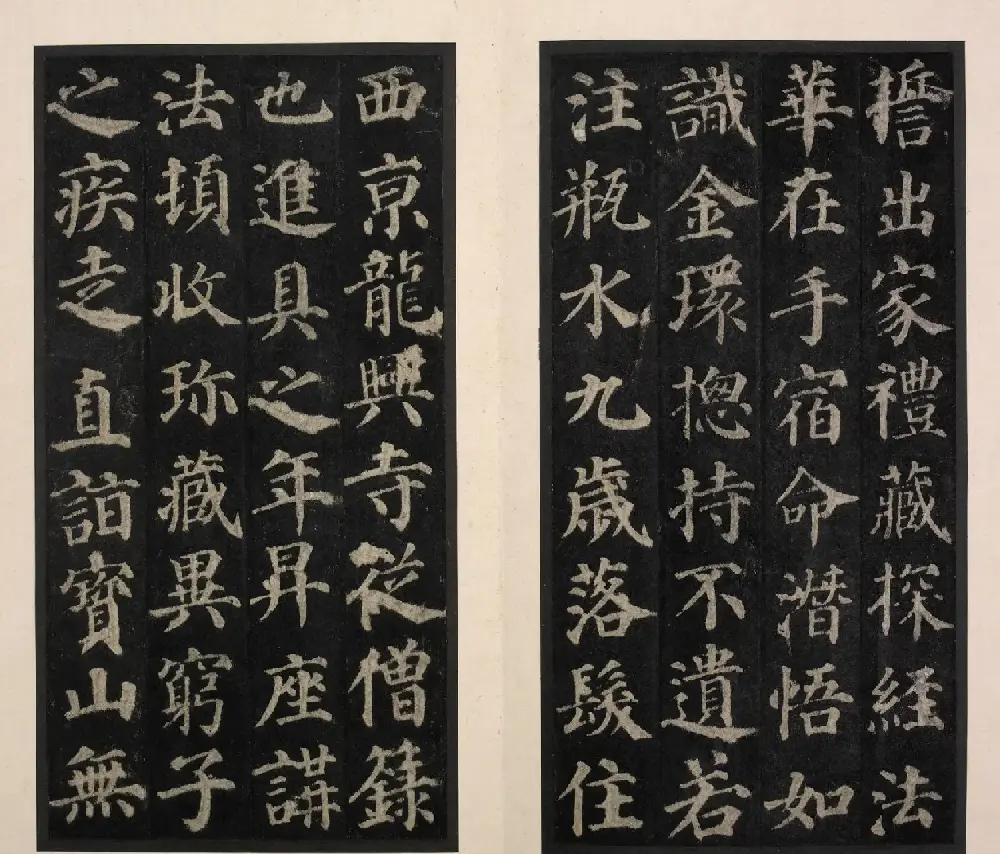 誓出家禮藏探經法
華在手宿命潛悟如
識金環揔持不遺若
注瓶水九歲落髮住
西京龍興寺從僧籙
也進具之年昇座講
法頓收珍藏異窮子
之疾走直詣寶山無